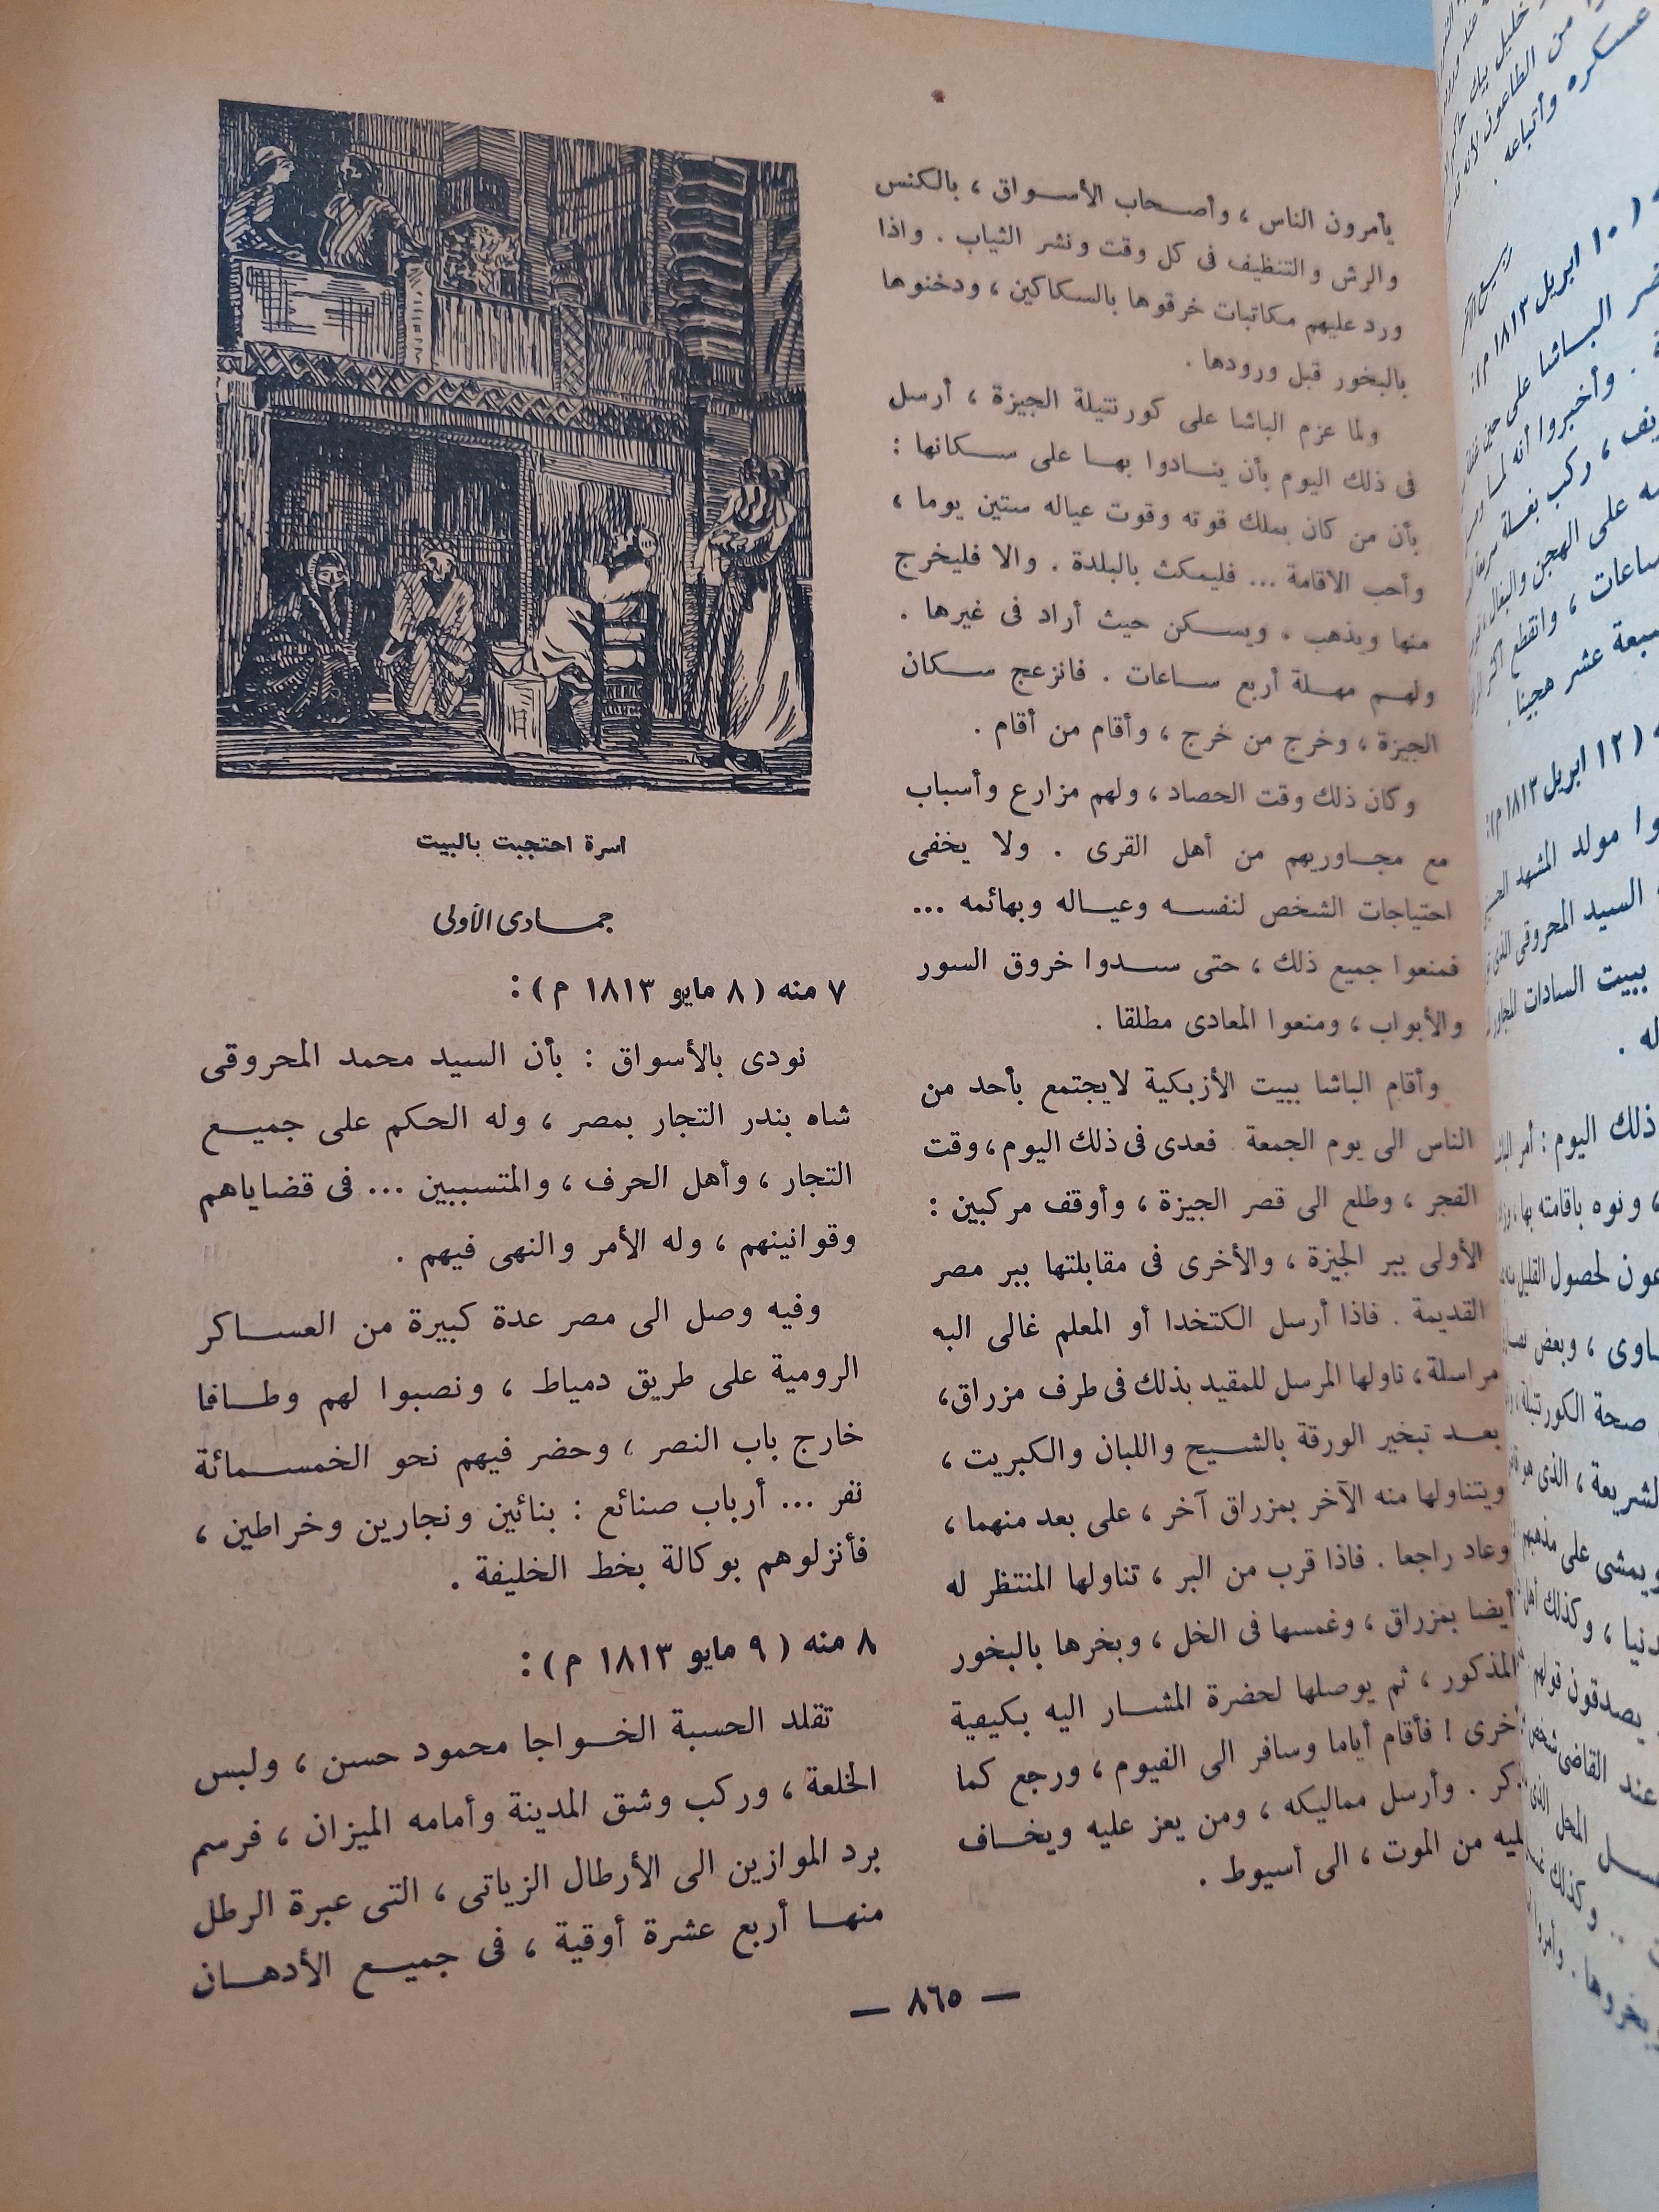 يأمرون الناس ، وأصحاب الأسواق ، بالكنس
والرش والتنظيف فى كل وقت ونشر الثياب . واذا
ورد عليهم مكاتبات خرقوها بالسكاكين ، ودخنوها
بالبخور قبل ورودها .
ولما عزم الباشا على كورنتيلة الجيزة ، أرسل
فى ذلك اليوم بأن ينادوا بها على سكانها :
بأن من كان يملك قوته وقوت عياله ستين يوما ،
وأحب الاقامة ... فليمكث بالبلدة . والا فليخرج
منها ويذهب ، ويسكن حيث أراد فى غيرها .
ولهم مهلة أربع ساعات . فانزعج سكان
الجيزة ، وخرج من خرج ، وأقام من أقام .
وكان ذلك وقت الحصاد ، ولهم مزارع وأسباب
مع مجاوريهم من أهل القرى . ولا يخفى
احتياجات الشخص لنفسه وعياله وبهائمه ...
فمنعوا جميع ذلك ، حتى سدوا خروق السور
والأبواب ، ومنعوا المعادى مطلقا .
وأقام الباشا ببيت الأزبكية لايجتمع بأحد من
الناس الى يوم الجمعة . فعدى فى ذلك اليوم ، وقت
الفجر ، وطلع الى قصر الجيزة ، وأوقف مركبين :
الأولى ببر الجيزة ، والأخرى فى مقابلتها ببر مصر
القديمة . فاذا أرسل الكتخدا أو المعلم غالى اليه
مراسلة ، ناولها المرسل للمقيد بذلك فى طرف مزراق،
بعد تبخير الورقة بالشيح واللبان والكبريت ،
ويتناولها منه الآخر بمزراق آخر ، على بعد منهما ،
وعاد راجعا . فاذا قرب من البر ، تناولها المنتظر له
أيضا بمزراق ، وغمسها فى الخل ، وبخرها بالبخور
المذكور ، ثم يوصلها لحضرة المشار اليه بكيفية
أخرى ! فأقام أياما وسافر الى الفيوم ، ورجع كما
ذكر . وأرسل مماليكه ، ومن يعز عليه ويخاف
عليه من الموت ، الى أسيوط .
اسرة احتجبت بالبيت
جمادى الأولى
٧ منه ( ٨ مايو ١٨١٣ م ) :
نودى بالأسواق : بأن السيد محمد المحروقى
شاه بندر التجار بمصر ، وله الحكم على جميع
التجار ، وأهل الحرف ، والمتسببين ... فى قضاياهم
وقوانينهم ، وله الأمر والنهى فيهم .
وفيه وصل الى مصر عدة كبيرة من العساكر
الرومية على طريق دمياط ، ونصبوا لهم وطاقا
خارج باب النصر ، وحضر فيهم نحو الخمسمائة
نفر ... أرباب صنائع : بنائين ونجارين وخراطين ،
فأنزلوهم بوكالة بخط الخليفة .
٨ منه ( ٩ مايو ١٨١٣ م ) :
تقلد الحسبة الخواجا محمود حسن ، ولبس
الخلعة ، وركب وشق المدينة وأمامه الميزان ، فرسم
برد الموازين الى الأرطال الزياتى ، التى عبرة الرطل
منها أربع عشرة أوقية ، فى جميع الأدهان
— ٨٦٥ —
عسكره وأتباعه .
( ١٠ ابريل ١٨١٣ م ) :
( ١٢ ابريل ١٨١٣ م ) :